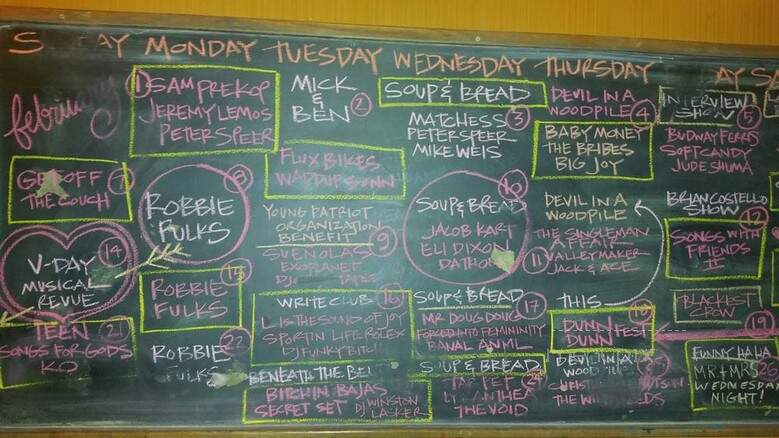 MONDAY TUESDAY WEDNESDAY THURSDAY
february
1
SAM PREKOP
JEREMY LEMOS
PETER SPEER
MICK
&
BEN
2
SOUP & BREAD
MATCHESS
3
PETER SPEER
MIKE WEIS
DEVIL IN A
WOODPILE
4
BABY MONEY
THE BRIBES
BIG JOY
INTERVIEW
SHOW
5
SOFT CANDY
JUDE SHUMA
GET OFF
THE COUCH
7
ROBBIE
FULKS
8
FLUX BIKES
YOUNG PATRIOT
ORGANIZATION
BENEFIT
9
EXOPLANET
SOUP & BREAD
10
JACOB KART
ELI DIXON
DEVIL IN A
WOODPILE
11
THE SINGLEMAN
AFFAIR
VALLEY MAKER
JACK & ACE
BRIAN COSTELLO
SHOW
12
SONGS WITH
FRIENDS
II
14
V-DAY
MUSICAL
REVUE
15
ROBBIE
FULKS
WRITE CLUB
16
L IS THE SOUND OF JOY
SPORTIN LIFE ROLEX
DJ FUNKY BITCH
SOUP & BREAD
17
MR DOUG DOUG
FORCED INTO FEMININITY
THIS
DUNN FEST
DUNN
BLACKEST
CROW
19
TEEN
21
SONGS FOR GODS
KO
22
ROBBIE
FULKS
BENEATH THE
BITCHIN BAJAS
SECRET SET
DJ WINSTON
LASKER
SOUP & BREAD
24
THE VOID
DEVIL IN A
FUNNY HA HA
MR & MRS
26
WEDNESDAY
NIGHT!